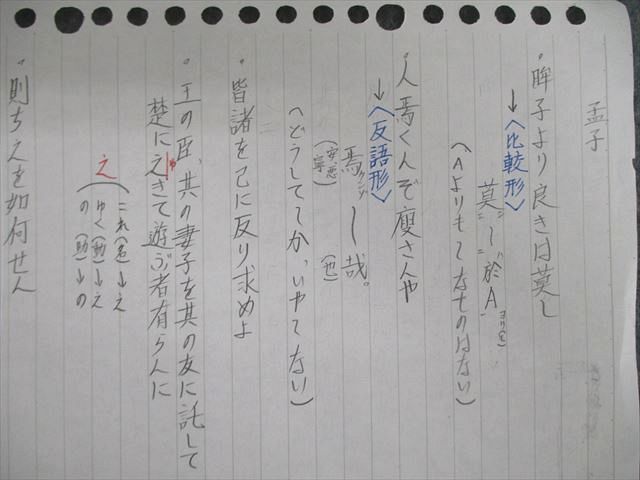 孟子
・眸子より良きは莫し
→〈比較形〉
莫ニ〜ニ於A一ヨリ(モ)
(Aよりも〜なものはない)
・人焉くんぞ廋さんや
→〈反語形〉
焉クンゾ〜哉。
(安、悪、寧) (也)
(どうして〜か、いや〜ない)
・皆諸を己に反り求めよ
・王の臣、其の妻子を其の友に託して
楚に之きて遊ぶ者有らんに
之
これ(名)→之
ゆく(動)→之
の(助)→の
・則ち之を如何せん